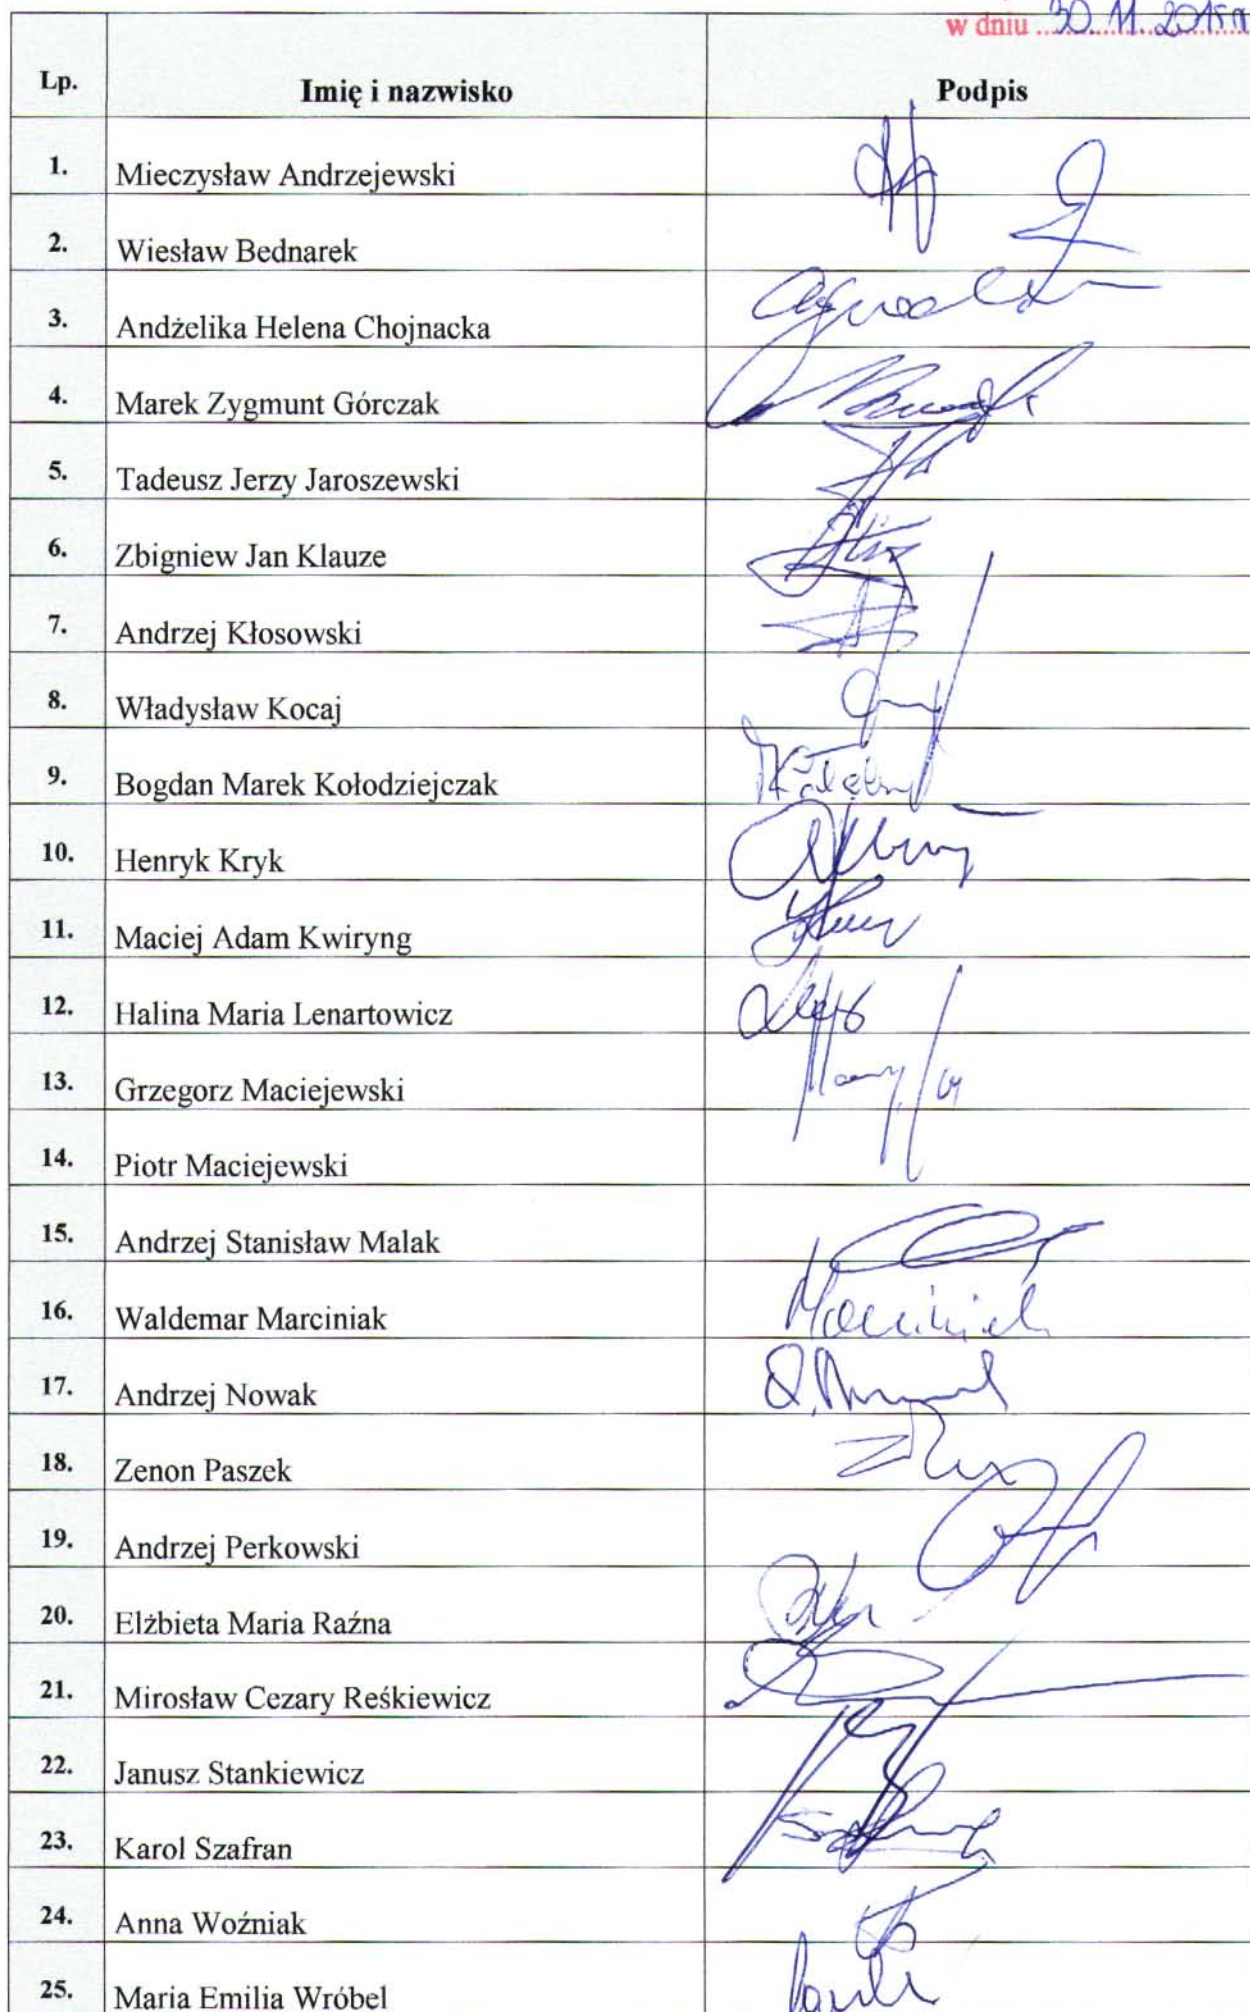 w dniu 30. 11. 2015 r
Lp. Imię i nazwisko Podpis
1. Mieczysław Andrzejewski
2. Wiesław Bednarek
3. Andżelika Helena Chojnacka
4. Marek Zygmunt Górczak
5. Tadeusz Jerzy Jaroszewski
6. Zbigniew Jan Klauze
7. Andrzej Kłosowski
8. Władysław Kocaj
9. Bogdan Marek Kołodziejczak
10. Henryk Kryk
11. Maciej Adam Kwiryng
12. Halina Maria Lenartowicz
13. Grzegorz Maciejewski
14. Piotr Maciejewski
15. Andrzej Stanisław Malak
16. Waldemar Marciniak Marciniak
17. Andrzej Nowak
18. Zenon Paszek
19. Andrzej Perkowski
20. Elżbieta Maria Raźna
21. Mirosław Cezary Reśkiewicz
22. Janusz Stankiewicz
23. Karol Szafran
24. Anna Woźniak
25. Maria Emilia Wróbel